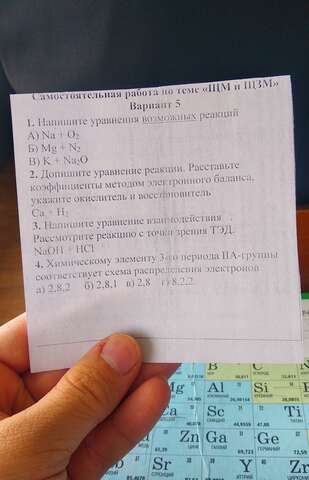 Самостоятельная работа по теме «ЩМ и ЩЗМ»
Вариант 5
1. Напишите уравнения возможных реакций
А) Na + O₂
Б) Mg + N₂
В) K + Na₂O
2. Допишите уравнение реакции. Расставьте
коэффициенты методом электронного баланса,
укажите окислитель и восстановитель
Ca + H₂
3. Напишите уравнение взаимодействия .
Рассмотрите реакцию с точки зрения ТЭД.
NaOH + HCl
4. Химическому элементу 3-го периода IIA-группы
соответствует схема распределения электронов
а) 2,8,2 б) 2,8,1 в) 2,8 г) 8,2,2
B C N
Mg Al Si
26,98154 28,0855
Ca Sc Ti
44,9559 47,88
Zn Ga Ge
65,39 69,723 72,59
Sr Y Zr